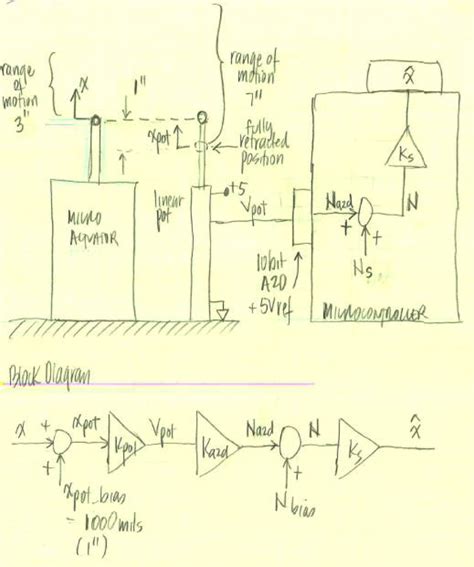 range
of
motion
3"
x
1"
xpot
range of
motion
7"
fully
retracted
position
x̂
Ks
MICRO
linear
pot
+5
Vpot
Na2d
+
+
N
Ns
10bit
A2D
+5Vref
MICROCONTROLLER
Block Diagram
x
+
+
xpot
Kpot
Vpot
Ka2d
Na2d
+
N
Ks
x̂
xpot_bias
= 1000mils
(1")
Nbias